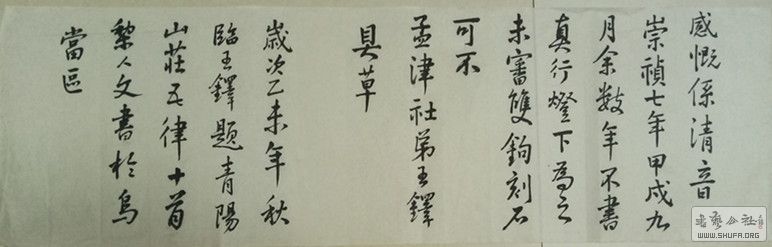 感慨係清音
崇禎七年甲戌九
月余数年不書
真行燈下為之
未審雙鉤刻石
可不
孟津社弟王鐸
具草
歲次乙未年秋
臨王鐸題青陽
山莊五律十首
黎人文書於烏
當區
WWW.SHUFA.ORG